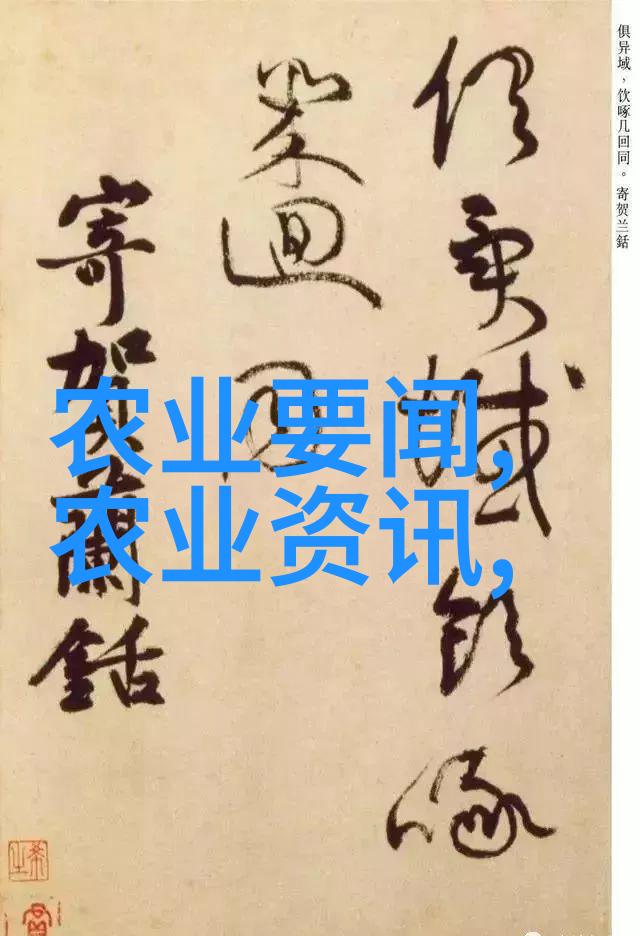 俱异域，饮啄几回同。寄贺兰銛
俱異域飲啄
幾迴同
寄賀蘭銛
农业要闻,
农业资讯,